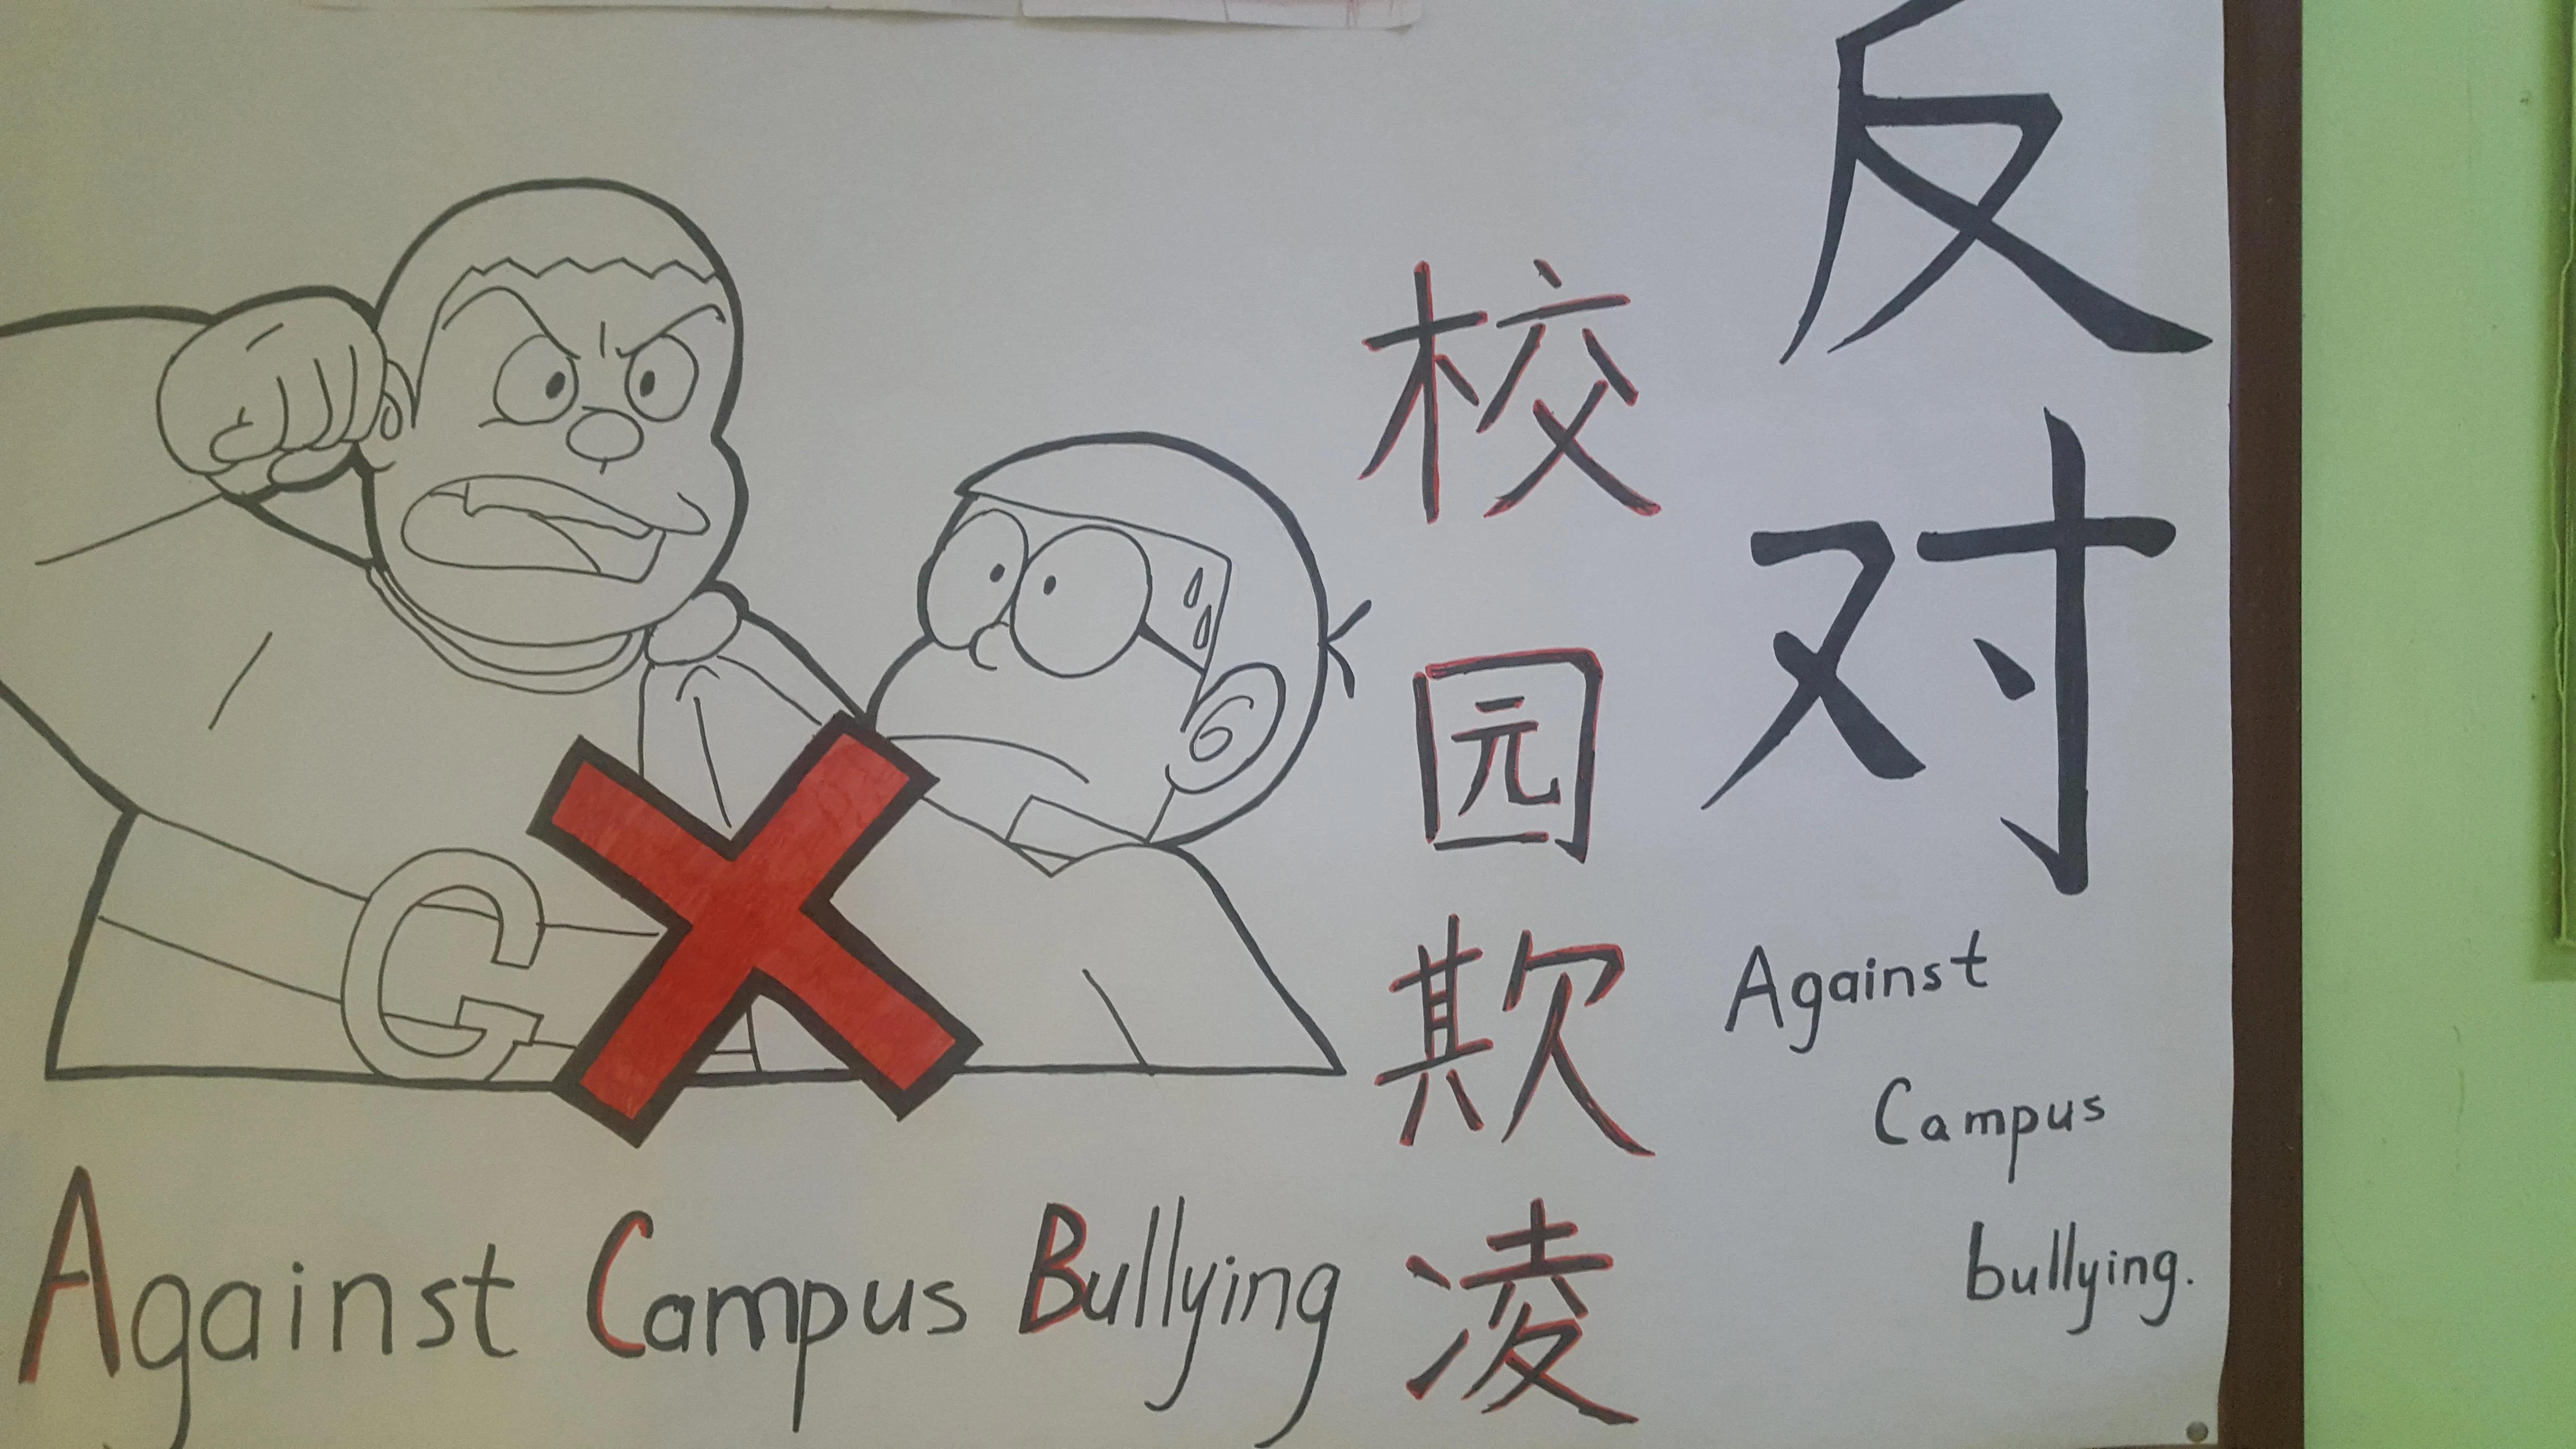 反对
校园欺凌
Against
Campus
bullying.
G
Against Campus Bullying